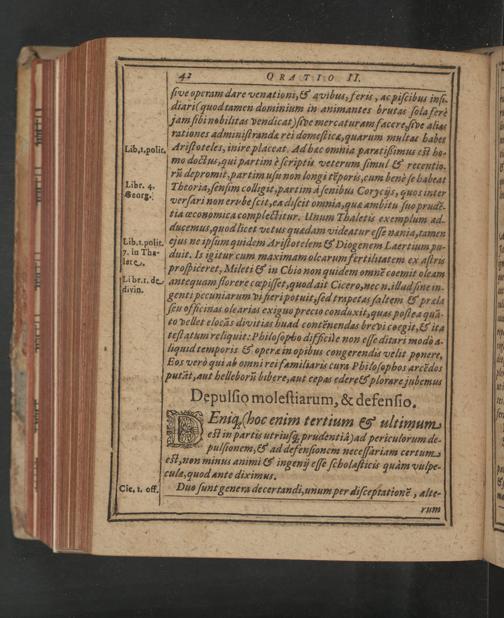 42 ORATIO II.
sive operam dare venationi, & avibus, feris, ac piscibus insi-
diari (quod tamen dominium in animantes brutas sola ferè
jam sibi nobilitas vendicat) sive mercaturam facere, sive alias
rationes administrandæ rei domesticæ, quarum multas habet
Lib.1.polit.
Aristoteles, inire placeat. Ad hæc omnia paratissimus est ho-
mo doctus, qui partim è scriptis veterum simul & recentio-
rũ depromit, partim usu non longi tẽporis, cum benè se habeat
Libr. 4.
Georg.
Theoria, sensim colligit, partim à senibus Corycijs, quos inter
versari non erubescit, ea discit omnia, quæ ambitu suo prudẽ-
tia œconomica complectitur. Unum Thaletis exemplum ad-
ducemus, quod licet vetus quædam videatur esse nænia, tamen
Lib.1.polit.
7. in Tha-
lete.
ejus ne ipsum quidem Aristotelem & Diogenem Laertium pu-
duit. Is igitur cum maximam olearum fertilitatem ex astris
prospiceret, Mileti & in Chio non quidem omnẽ coemit oleam
Libr.1. de
divin.
antequam florere cœpisset, quod ait Cicero, nec n. illud sine in-
genti pecuniarum vi fieri potuit, sed trapetas saltem & præla
seu officinas olearias exiguo precio conduxit, quas postea quã-
to vellet elocãs divitias haud contẽnendas brevi coegit, & ita
testatum reliquit: Philosopho difficile non esse ditari modò a-
liquid temporis & operæ in opibus congerendis velit ponere,
Eos verò qui ab omni rei familiaris cura Philosophos arcẽdos
putãt, aut helleborũ bibere, aut cepas edere & plorare jubemus
Depulsio molestiarum, & defensio.
DEniq; (hoc enim tertium & ultimum
est in partis utriusq; prudentiâ) ad periculorum de-
pulsionem, & ad defensionem necessariam certum
est, non minus animi & ingenij esse scholasticis quàm vulpe-
cula, quod ante diximus.
Cic. 1. off.
Duo sunt genera decertandi, unum per disceptationẽ, alte-
rum